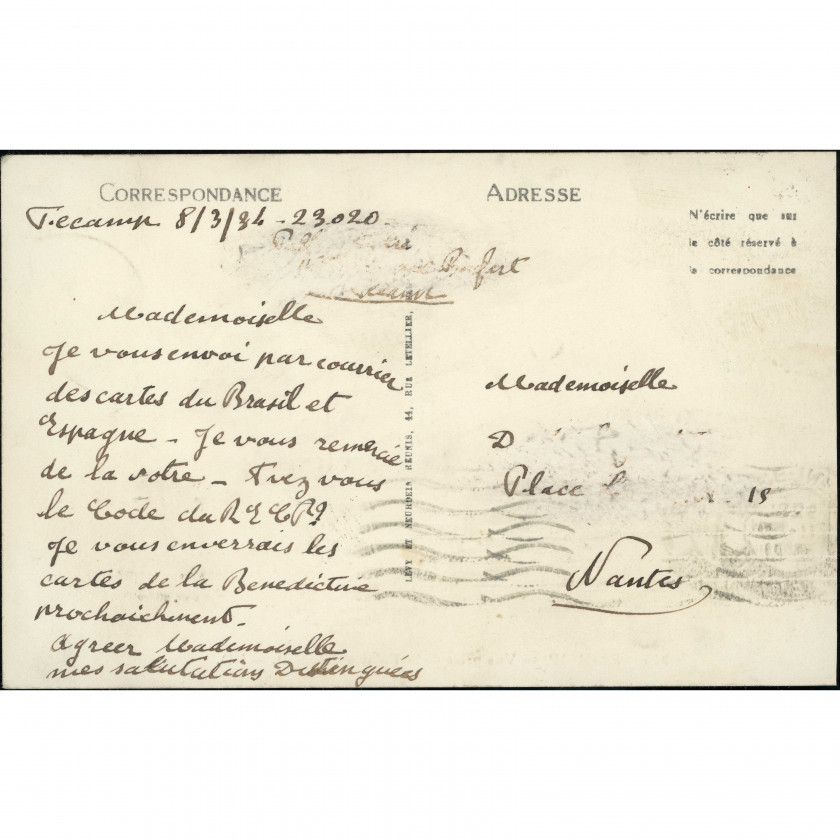 CORRESPONDANCE
Fecamp 8/3/34 - 23020
Mademoiselle
Je vous envoi par courrier
des cartes du Brasil et
Espagne - Je vous remercie
de la votre - Avez vous
le Code du
Je vous enverrais les
cartes de la Benedictine
prochainment.
Agreer Mademoiselle
mes salutations Distinguées
LÉVY ET NEURDEIN RÉUNIS, 44, RUE LETELLIER,
ADRESSE
N'écrire que sur
le côté réservé à
la correspondance
Mademoiselle
D
Place 15
Nantes